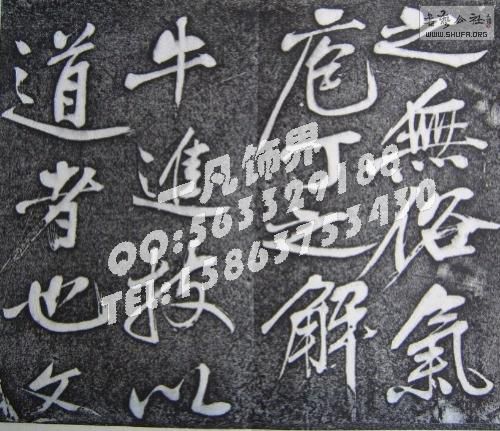 之無俗氣
庖丁之解
牛進技以
道者也文
WWW.SHUFA.ORG
一凡饰界
QQ:563329188
TEL:15863753430